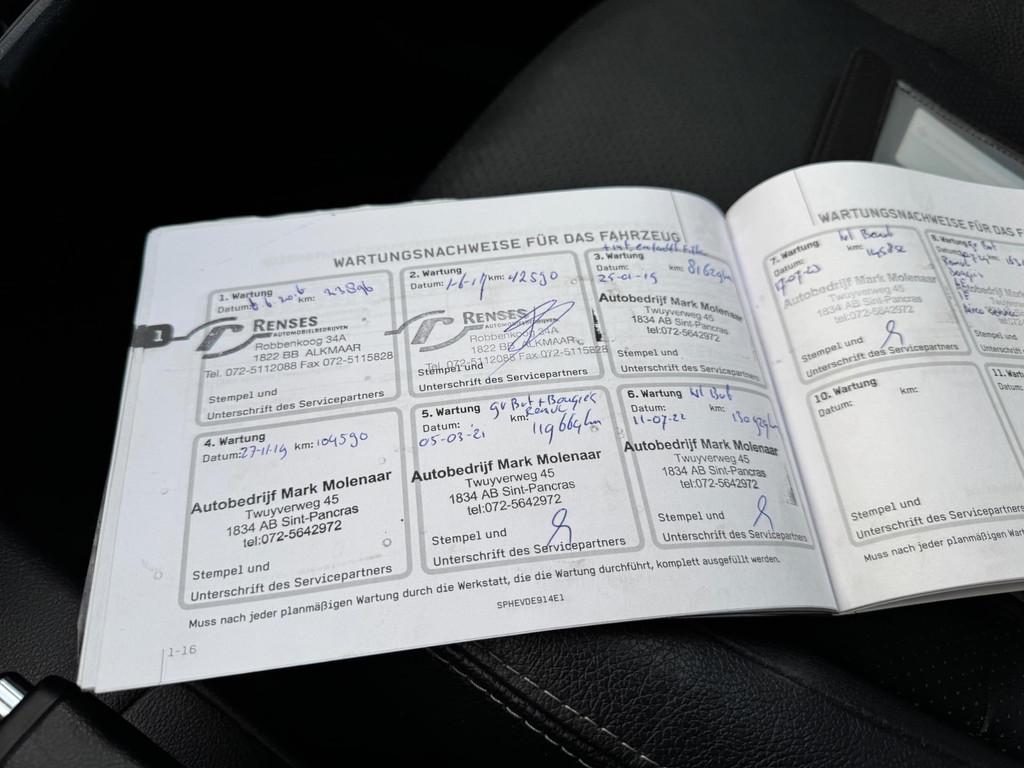 WARTUNGSNACHWEISE FÜR DAS FAHRZEUG
1. Wartung
Datum: km: 23896
RENSES
AUTOMOBIELBEDRIJVEN
Robbenkoog 34A
1822 BB ALKMAAR
Tel. 072-5112088 Fax 072-5115828
Stempel und
Unterschrift des Servicepartners
2. Wartung
Datum: 1-6-17 km: 42590
RENSES
AUTOMOBIELBEDRIJVEN
Robbenkoog 34A
1822 BB ALKMAAR
Tel. 072-5112088 Fax 072-5115828
Stempel und
Unterschrift des Servicepartners
3. Wartung
Datum: km:
25-01-19
Autobedrijf Mark Molenaar
Twuyverweg 45
1834 AB Sint-Pancras
tel:072-5642972
Stempel und
Unterschrift des Servicepartners
4. Wartung
Datum: 27-11-19 km: 104590
Autobedrijf Mark Molenaar
Twuyverweg 45
1834 AB Sint-Pancras
tel:072-5642972
Stempel und
Unterschrift des Servicepartners
5. Wartung gr But + Bougies
Datum: km:
05-03-21 119669km
Autobedrijf Mark Molenaar
Twuyverweg 45
1834 AB Sint-Pancras
tel:072-5642972
Stempel und
Unterschrift des Servicepartners
6. Wartung kl But
Datum: km:
11-07-22
Autobedrijf Mark Molenaar
Twuyverweg 45
1834 AB Sint-Pancras
tel:072-5642972
Stempel und
Unterschrift des Servicepartners
Muss nach jeder planmäßigen Wartung durch die Werkstatt, die die Wartung durchführt, komplett ausgefüllt werden.
SPHEVDE914E1
1-16
1
WARTUNGSNACHWEISE FÜR DAS F
7. Wartung kl Beut
Datum: km:
Autobedrijf Mark Molenaar
Twuyverweg 45
1834 AB Sint-Pancras
tel:072-5642972
Stempel und
Unterschrift des Servicepartners
8. Wartung
Stempel und
Unterschrift des
10. Wartung
Datum: km:
Stempel und
Unterschrift des Servicepartners
11. Wart
Datum:
Stempel und
Unterschrift des
Muss nach jeder planmäßigen War